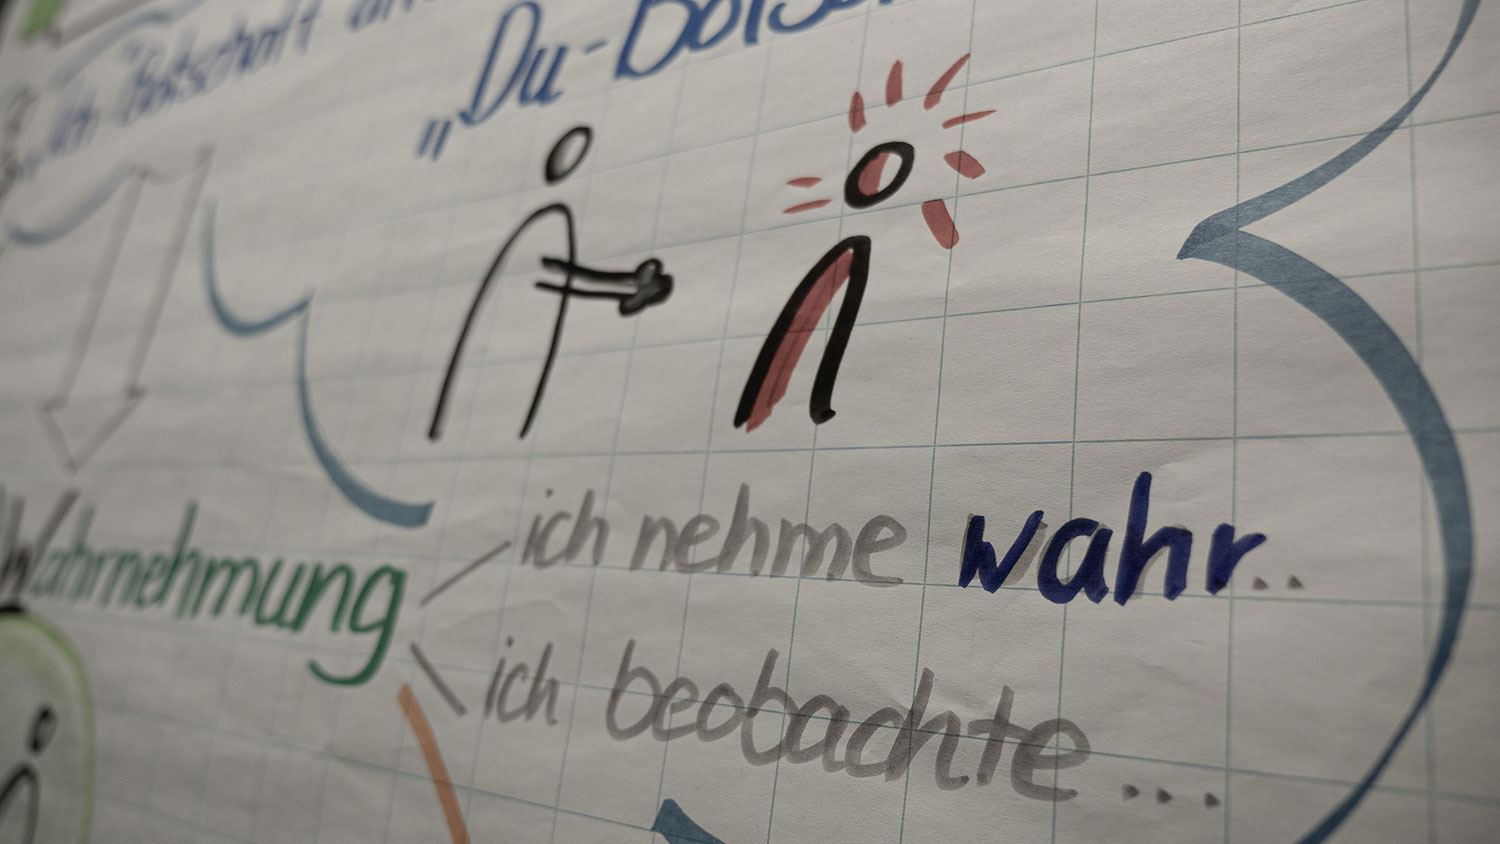 „Ich-Botschaft
„Du-Botsch
Wahrnehmung
ich nehme wahr..
ich beobachte...